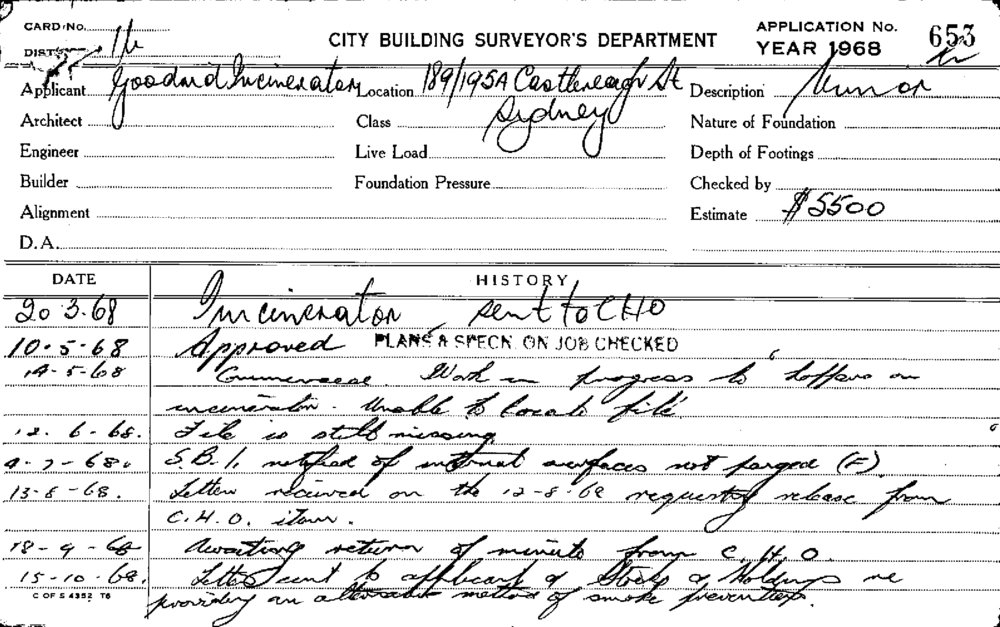 CARD No.
DIST
CITY BUILDING SURVEYOR'S DEPARTMENT
APPLICATION No. 653
YEAR 1968
Applicant Incinerator Location 189/195A Castlereagh St Description
Sydney
Architect Class Nature of Foundation
Engineer Live Load Depth of Footings
Builder Foundation Pressure Checked by
Alignment Estimate $5500
D.A.
DATE HISTORY
20 3.68 Incinerator sent to CHO
10.5.68 Approved PLANS & SPECN ON JOB CHECKED
14-5-68 Commenced. Work in progress to hoppers on
incinerator. Unable to locate file
12.6-68. File is still missing
4-7-68. S.B.I. notified of internal surfaces not parged (F).
13-8-68. Letter received on the 12-8-68 requesting release from
C.H.O. item.
18-9-68 Awaiting return of minute from C.H.O.
15-10-68. Letter sent to applicant & Stocks & Holdings re
C OF S 4352 T6
providing an alternative method of smoke prevention.